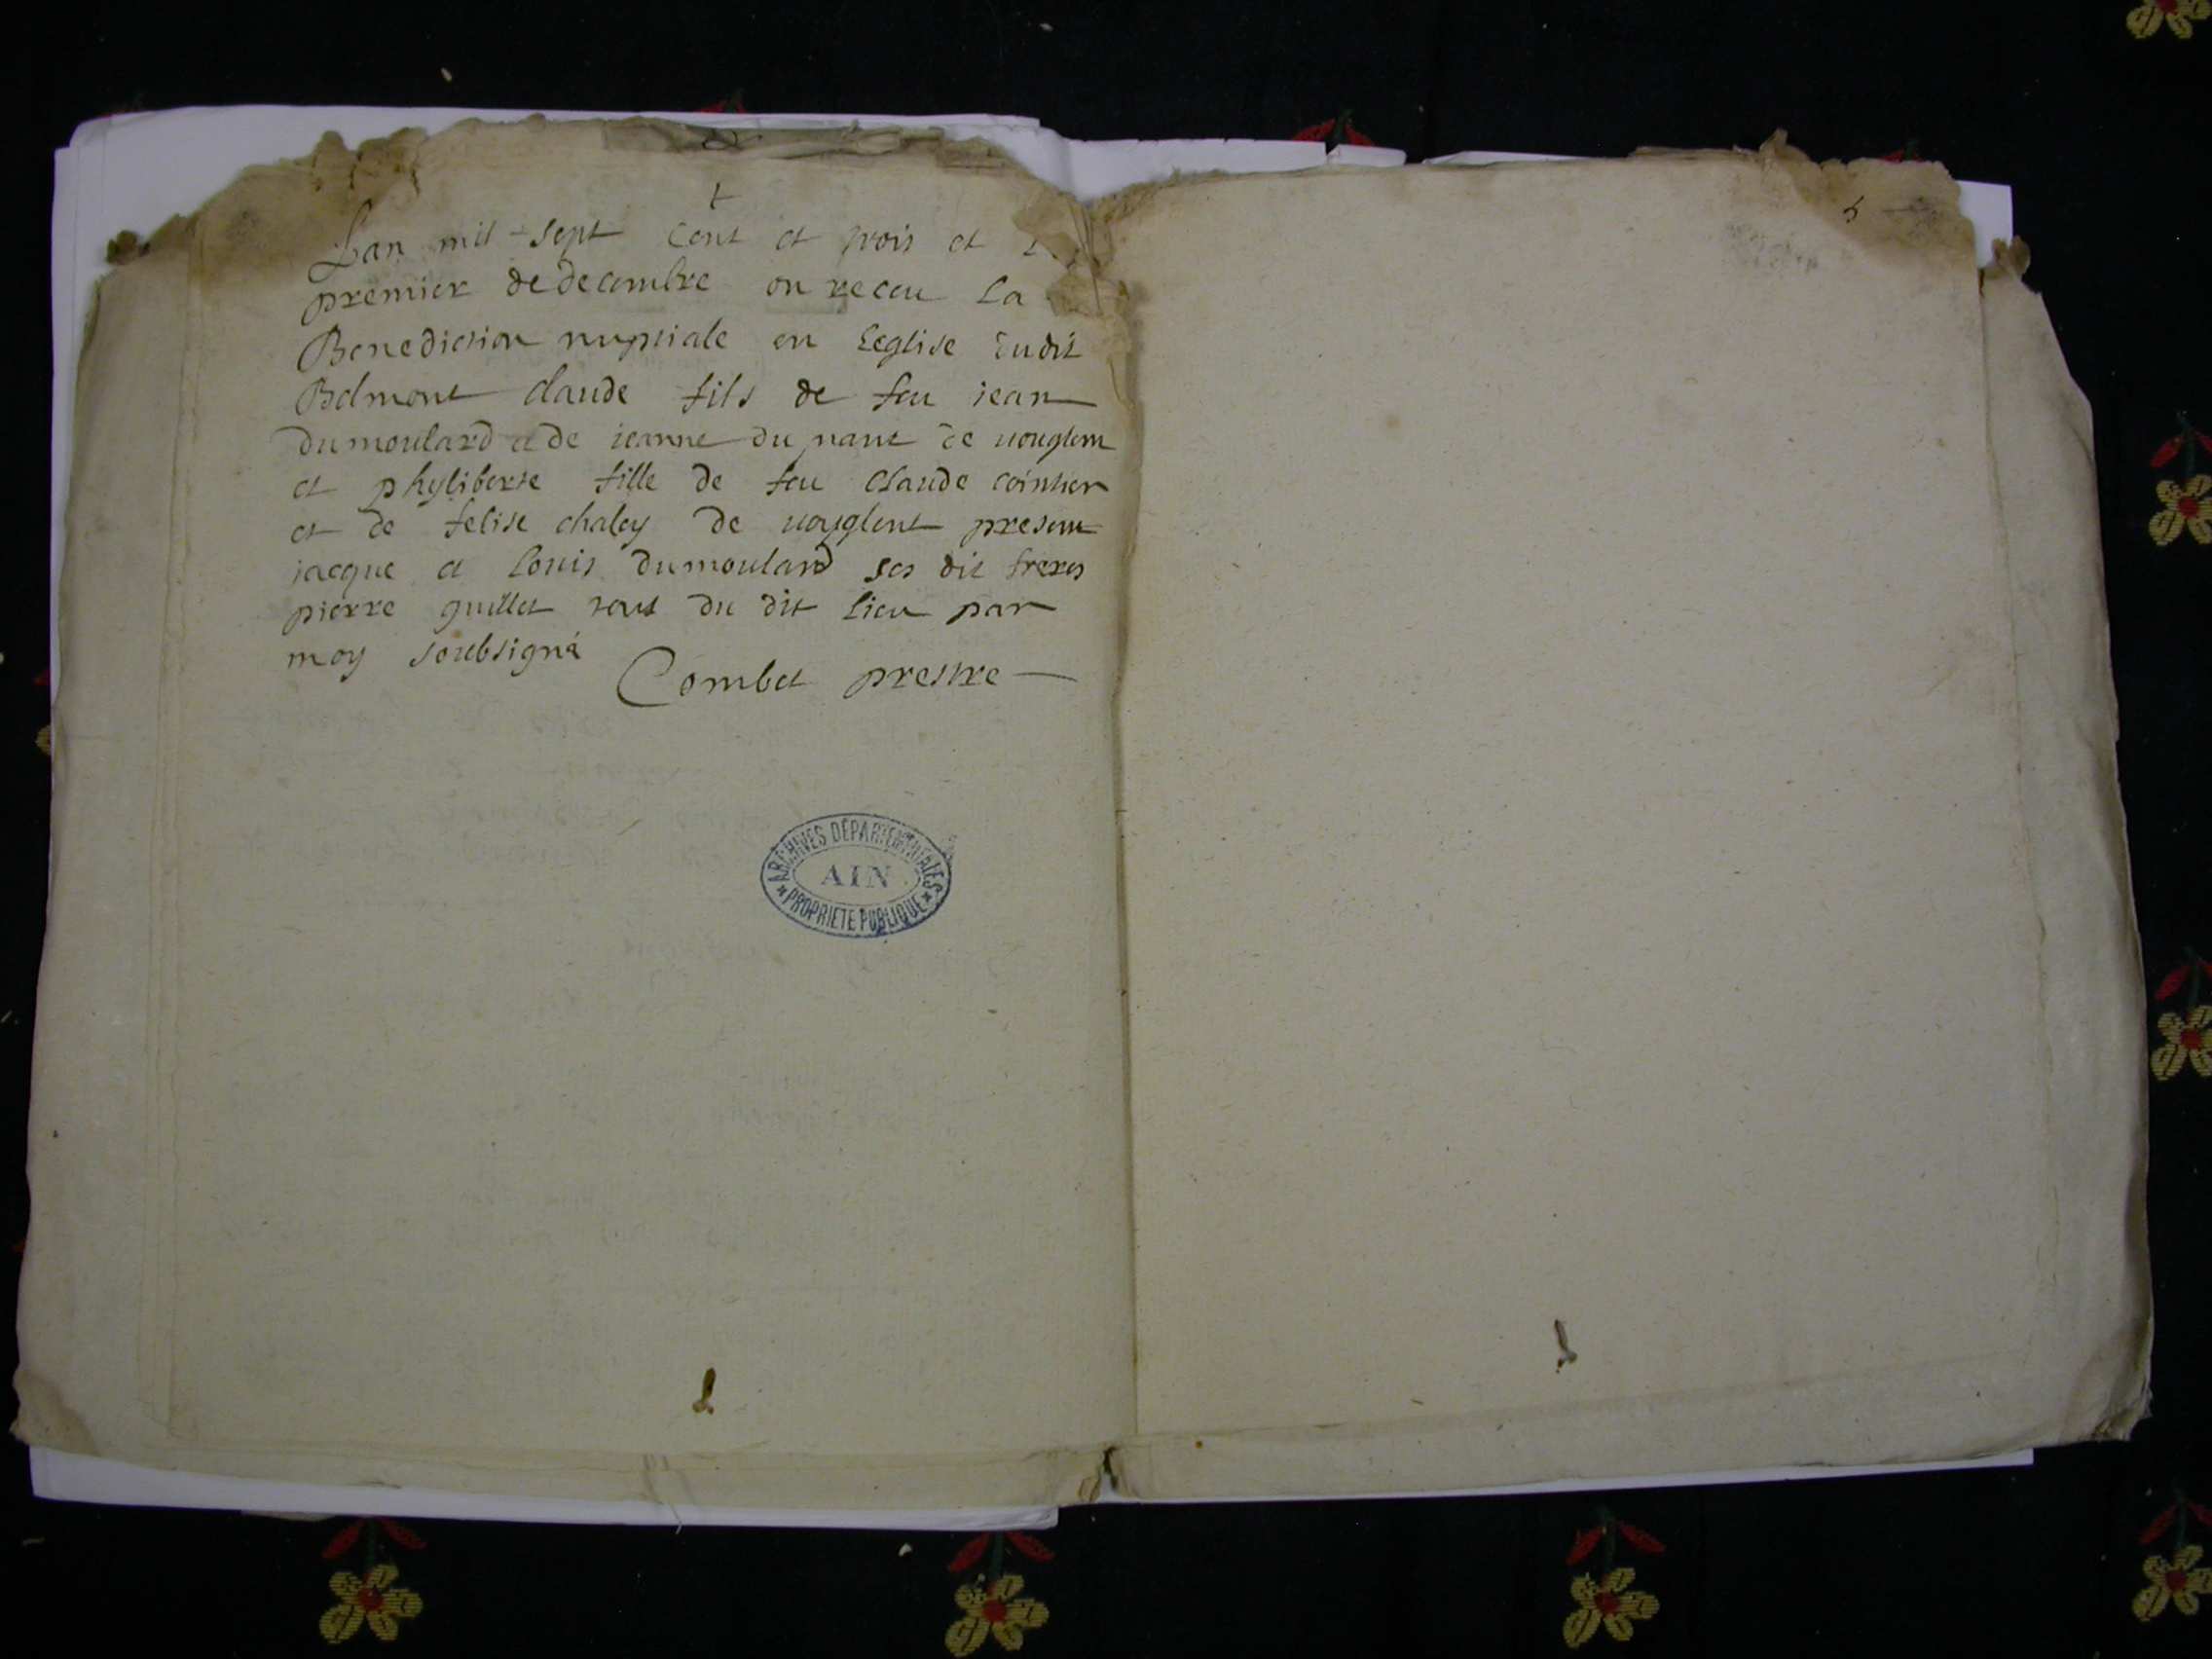 Lan mil sept cent et trois et
premier de decembre on receu La
Benediction nuptiale en Leglise dudit
Belmont claude fils de feu jean
dumoulard et de jeanne du nant de
et phyliberte fille de feu Claude
et de felise chaley de present
jacque et Louis dumoulard ses dit freres
pierre guillet tous du dit Lieu par
moy soubsigné
Combet prestre
ARCHIVES DÉPARTEMENTALES
AIN
PROPRIETE PUBLIQUE
5